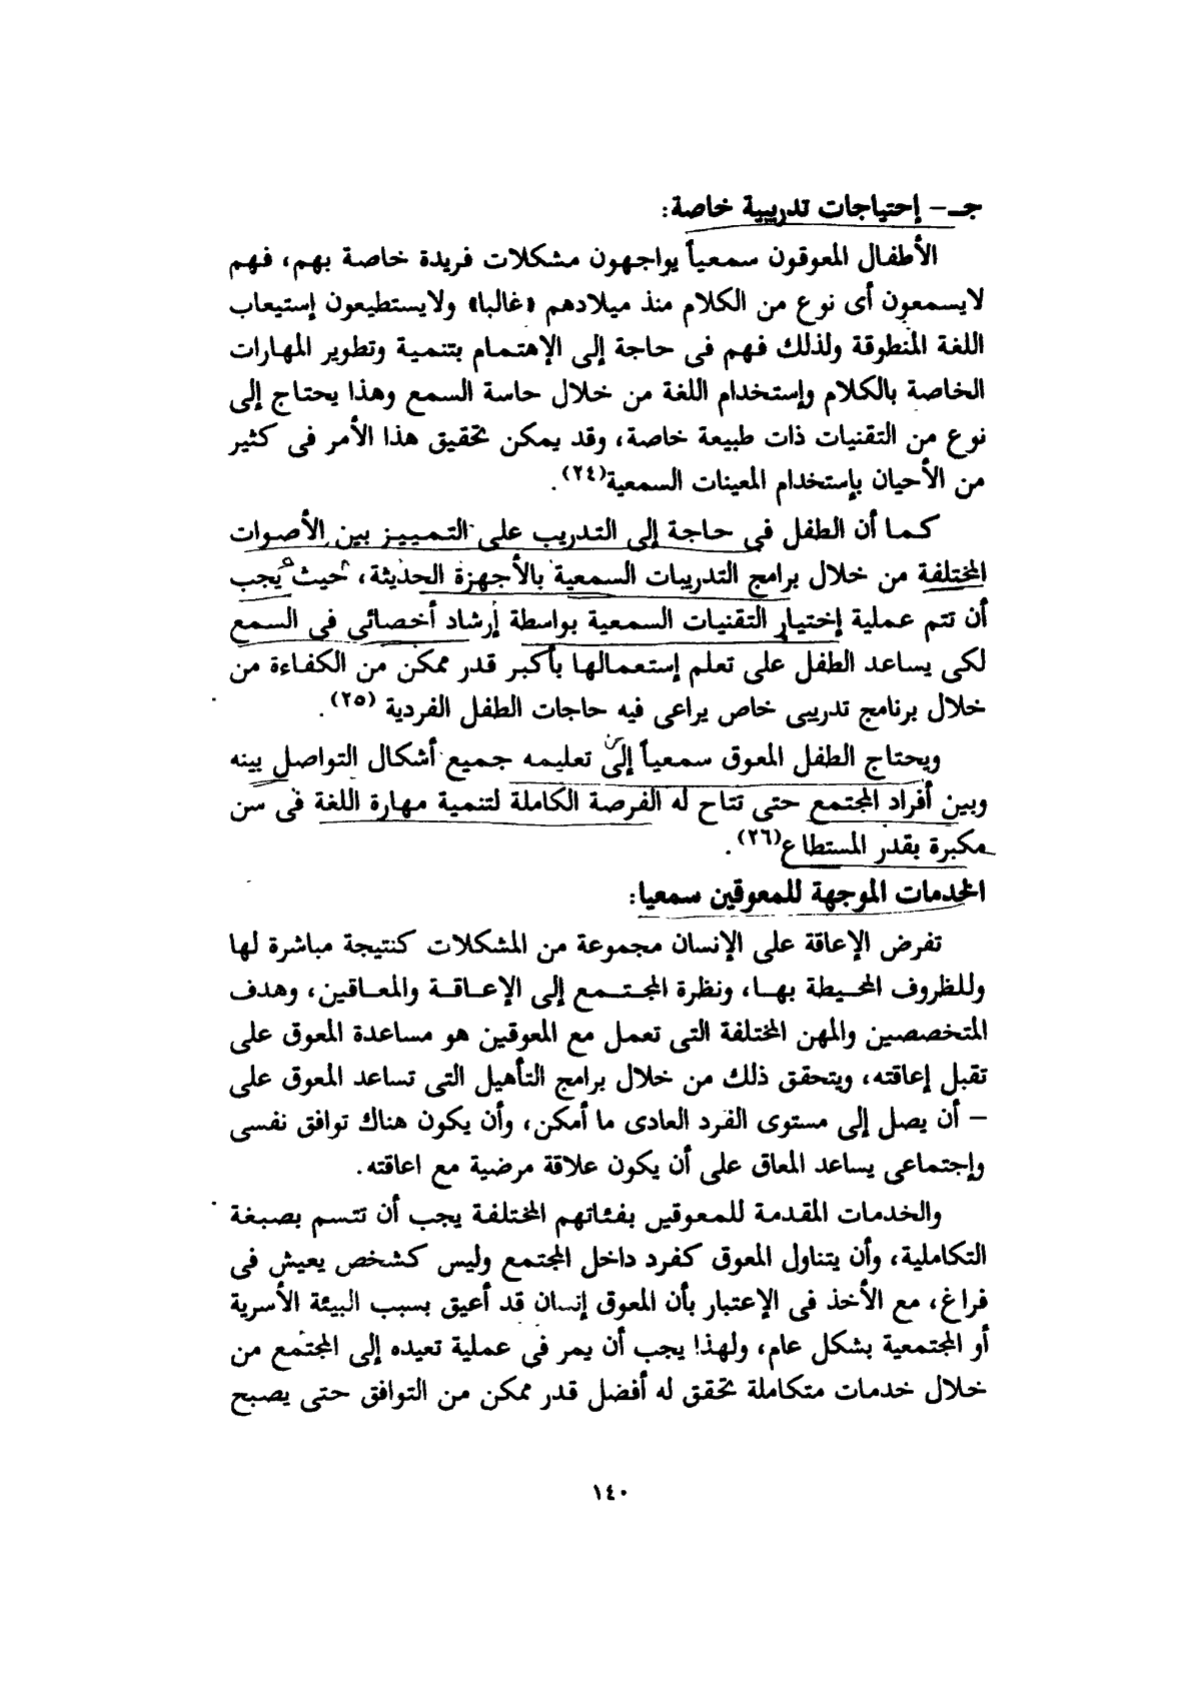 جـ – إحتياجات تدريبية خاصة:
الأطفال المعوقون سمعياً يواجهون مشكلات فريدة خاصة بهم، فهم
لايسمعون أى نوع من الكلام منذ ميلادهم «غالبا» ولايستطيعون إستيعاب
اللغة المنطوقة ولذلك فهم فى حاجة إلى الإهتمام بتنمية وتطوير المهارات
الخاصة بالكلام وإستخدام اللغة من خلال حاسة السمع وهذا يحتاج إلى
نوع من التقنيات ذات طبيعة خاصة، وقد يمكن تحقيق هذا الأمر فى كثير
من الأحيان بإستخدام المعينات السمعية(٢٤).
كما أن الطفل فى حاجة إلى التدريب على التمييز بين الأصوات
المختلفة من خلال برامج التدريبات السمعية بالأجهزة الحديثة، حيث يجب
أن تتم عملية إختيار التقنيات السمعية بواسطة إرشاد أخصائى فى السمع
لكى يساعد الطفل على تعلم إستعمالها بأكبر قدر ممكن من الكفاءة من
خلال برنامج تدريبى خاص يراعى فيه حاجات الطفل الفردية (٢٥).
ويحتاج الطفل المعوق سمعياً إلى تعليمه جميع أشكال التواصل بينه
وبين أفراد المجتمع حتى تتاح له الفرصة الكاملة لتنمية مهارة اللغة فى سن
مكبرة بقدر المستطاع(٢٦).
الخدمات الموجهة للمعوقين سمعيا:
تفرض الإعاقة على الإنسان مجموعة من المشكلات كنتيجة مباشرة لها
وللظروف المحيطة بها، ونظرة المجتمع إلى الإعاقة والمعاقين، وهدف
المتخصصين والمهن المختلفة التى تعمل مع المعوقين هو مساعدة المعوق على
تقبل إعاقته، ويتحقق ذلك من خلال برامج التأهيل التى تساعد المعوق على
– أن يصل إلى مستوى الفرد العادى ما أمكن، وأن يكون هناك توافق نفسى
وإجتماعى يساعد المعاق على أن يكون علاقة مرضية مع اعاقته.
والخدمات المقدمة للمعوقين بفئاتهم المختلفة يجب أن تتسم بصبغة
التكاملية، وأن يتناول المعوق كفرد داخل المجتمع وليس كشخص يعيش فى
فراغ، مع الأخذ فى الإعتبار بأن المعوق إنسان قد أعيق بسبب البيئة الأسرية
أو المجتمعية بشكل عام، ولهذا يجب أن يمر فى عملية تعيده إلى المجتمع من
خلال خدمات متكاملة تحقق له أفضل قدر ممكن من التوافق حتى يصبح
١٤٠